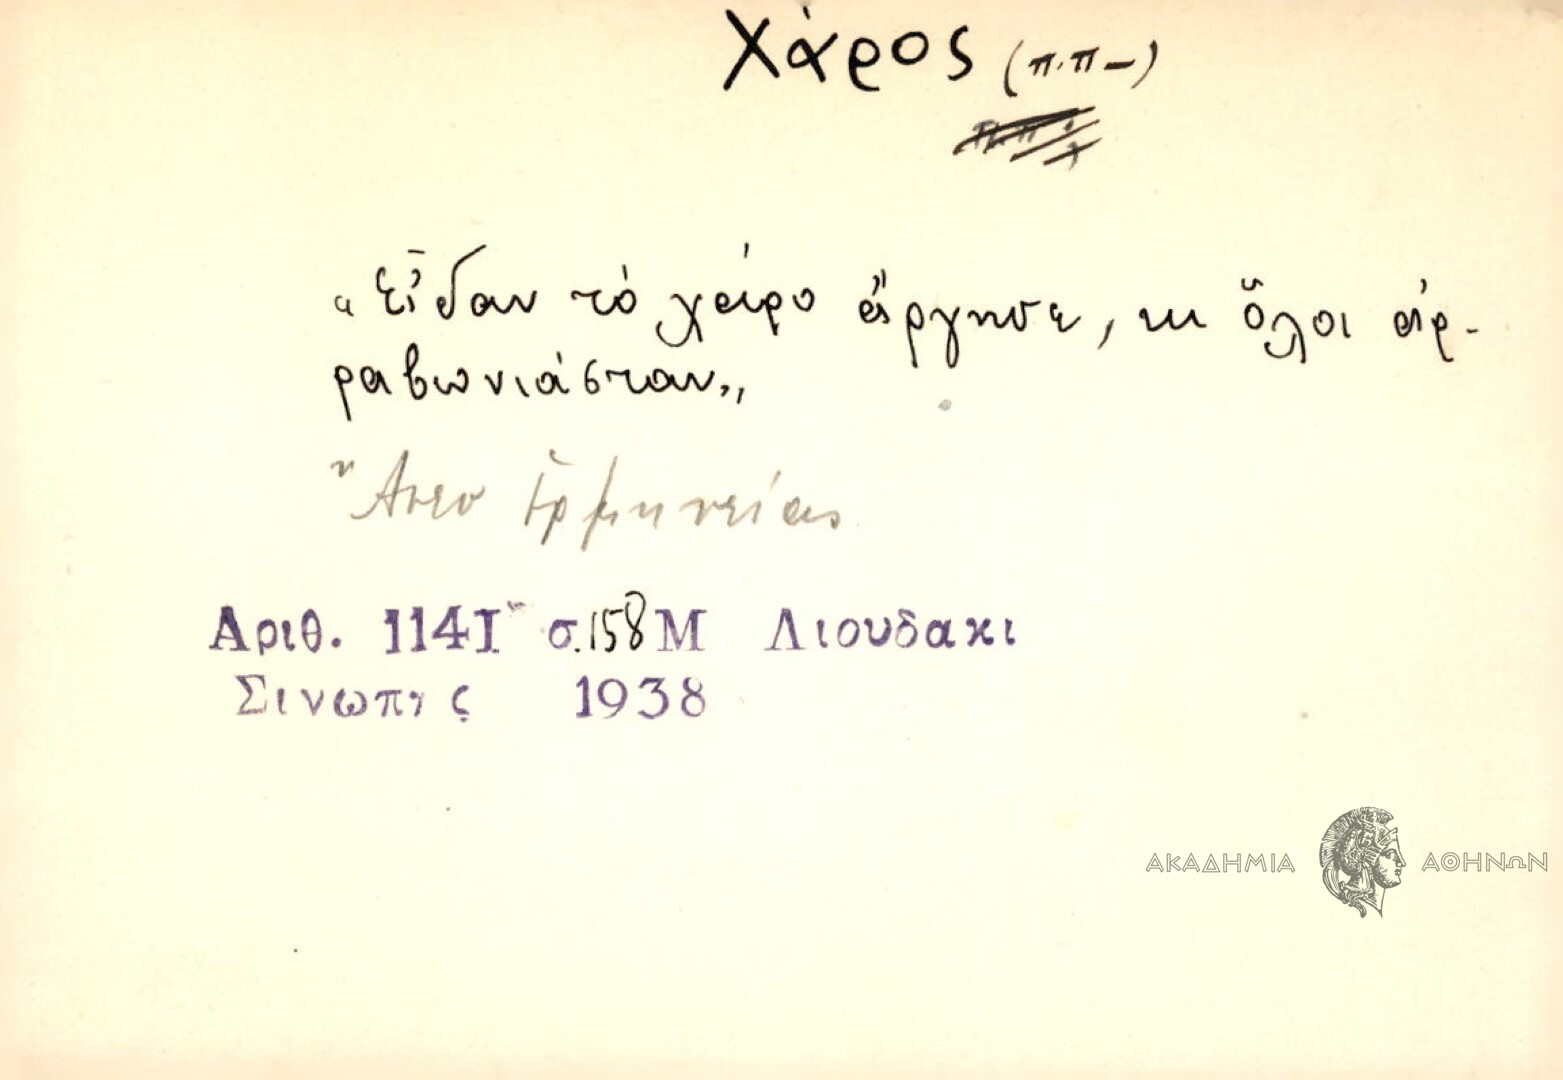 Χάρος (π.π-)
"Εἶδαν τὸ χάρο ἄργησε, κι ὅλοι ἀρ-
ραβωνιάσταν"
Ἄνευ ἑρμηνείας
Αριθ. 1141 σ.158 Μ Λιουδακι
Σινωπης 1938
ΑΚΑΔΗΜΙΑ ΑΘΗΝΩΝ